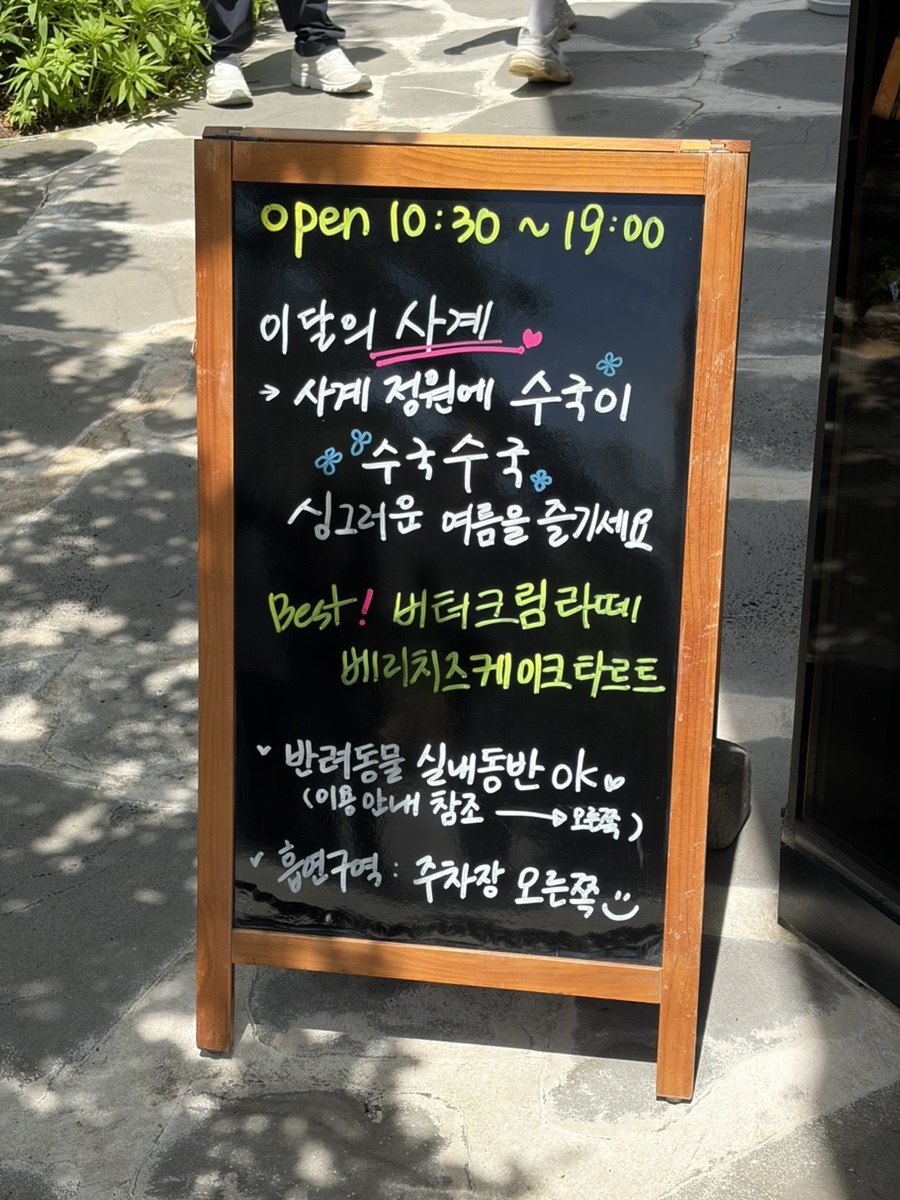 open 10:30 ~ 19:00
이달의 사계
→ 사계 정원에 수국이
수국수국
싱그러운 여름을 즐기세요
Best! 버터크림라떼
베리치즈케이크타르트
반려동물 실내동반 ok
(이용안내 참조 → 오른쪽)
흡연구역 : 주차장 오른쪽